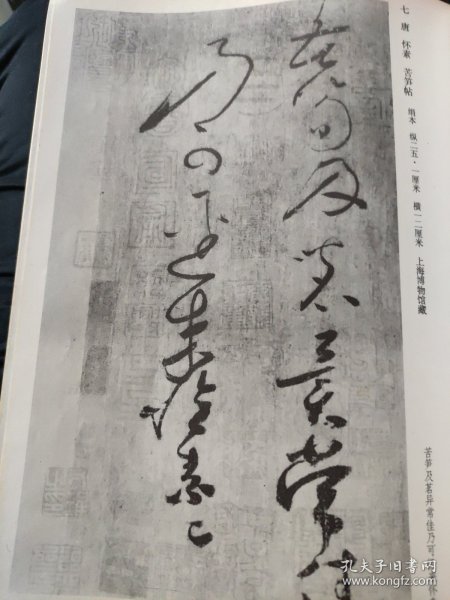 七 唐 怀素 苦笋帖 绢本 纵二五·一厘米 横一二厘米 上海博物馆藏
苦笋及茗异常
乃可迳来怀素上
苦笋及茗异常佳乃可
孔夫子旧书网